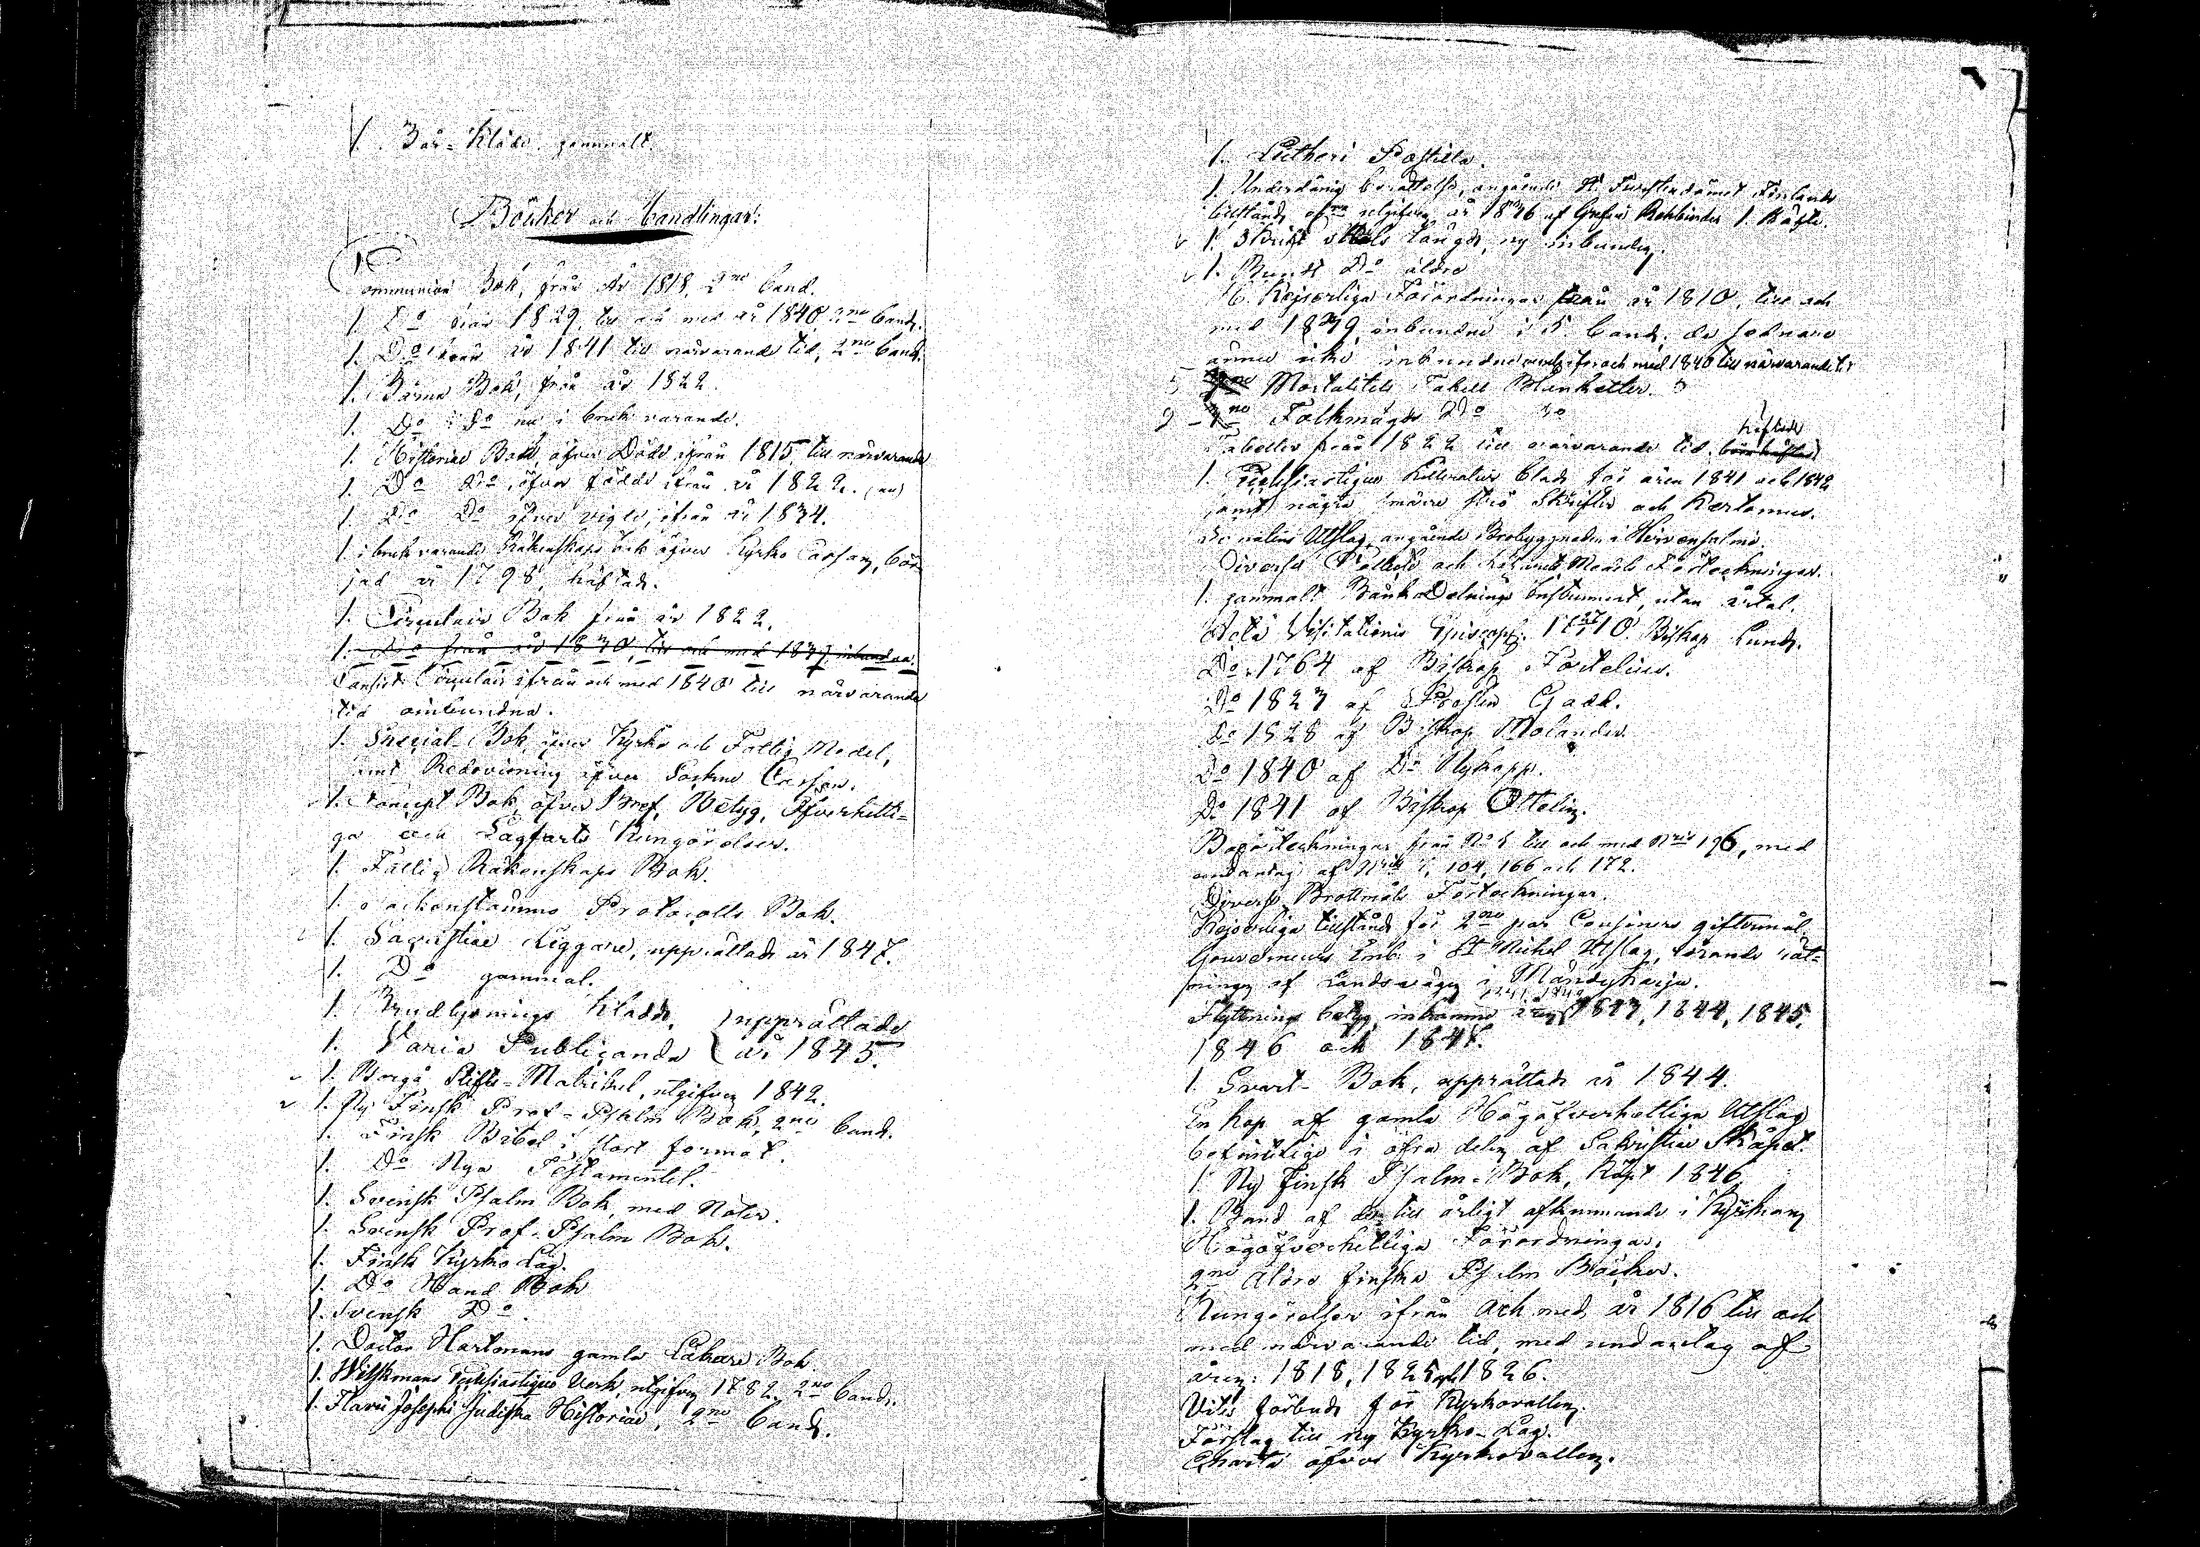 1. Bår-Kläde, gammalt.
Böcker och Handlingar:
Communion Bok, från År 1818, 2ne band.
1. Do från 1829, till och med år 1840, 2ne band.
1. Do från år 1841 till närvarande tid, 2ne band.
1. Barna Bok, från år 1822.
1. Do Do nu i bruk varande.
1. Historiae Bok öfver Döde ifrån 1815, till närvarande
1. Do Do öfver födde ifrån år 1822.
1. Do Do öfver vigde, ifrån år 1834.
1. i bruk varande Räkenskaps bok öfver Kyrko Cassan, bör-
jad år 1798, häftad.
1. Circulair Bok från år 1822.
1. Do från år 1830, till och med 1839 inbundna.
Consist. Circulair ifrån och med 1840 till närvarande
tid oinbundna.
1. Special-Bok öfver Kyrko och Fattig Medel,
samt Redovisning öfver Sockne Cassan.
1. Concept Bok öfver Bref, Betyg, Öfverhetli-
ga och Lagfarts Kungörelser.
1. Fattig Räkenskaps Bok.
1. Sockenstämmo Protocolls Bok.
1. Sacristiae Liggare, upprättad år 1847.
1. Do gammal.
1. Brudlysnings Kladd. } upprättade
1. Varia Publicanda } år 1845.
1. Borgå Stifts-Matrikel, utgifven 1842.
1. Ny Finsk Prof-Psalm Bok, 2ne band.
1. Finsk Bibel i stort format.
1. Do Nya Testamentet.
1. Svensk Psalm Bok, med Noter.
1. Svensk Prof-Psalm Bok.
1. Finsk Kyrko Lag.
1. Do Hand Bok
1. Svensk Do.
1. Doctor Hartmans gamla Läkare Bok.
1. Wilskmans Ecclesiastique Verk, utgifven 1782. 2ne band.
1. Flavii Josephi Judiska Historiae, 2ne band.
1. Lutheri Postilla.
1. Underdånig berättelse, angående St. Furstendömet Finlands
tillstånd, utgifven år 1836 af Grefve Rehbinder 1. häfte.
1. Skrift Skols Längd, ny inbunden.
1. Bundt Do äldre
Kejserliga Förordningar från år 1810, till och
med 1839, inbundne i 5 band; de sednare
ännu icke inbundne ifrån och med 1840 till närvarande tid
5 Mortalitets Tabell Blanketter.
2 Folkmängds Do Do
häftade
Tabeller från 1822 till närvarande tid.
1. Ecclesiastique Litteratur blad för åren 1841 och 1842
samt några smärre strö Skrifter och Cartonner.
Utslag, angående Brobyggnaden i Hirvensalmi.
Diverse och Förteckningar.
1. gammalt Bänka Delnings Instrument, utan årtal.
Acta Visitationis Episcop. 1710. Biskop Lund.
Do 1764 af Biskop Portelius.
Do 1827 af Prosten Gadd.
Do 1828 af Biskop Molander.
Do 1840 af Do Nykopp.
Do 1841 af Biskop Ottelin.
från No 1 till och med Nris 196, med
undantag af Nris 104, 166 och 172.
Diverse Brottmåls Förteckningar.
Kejserliga tillstånd för 2ne par Cousiners giftermål.
Gouverneurs Emb. i St Michel Utslag, rörande rät-
ningen af Landsvägen i Mändyharju.
1841, 1842
Flyttnings betyg, inkomne åren 1843, 1844, 1845,
1846 och 1847.
1. Svart-Bok, upprättad år 1844.
En hop af gamla Högöfverhetliga Utslag
befintlige i öfra delen af Sakristiae Skåpet.
1. Ny finsk Psalm-Bok, köpt 1846
1. Band af de till årligt afkunnande i Kyrkan
Högöfverhetliga Förordningar.
2ne äldre finska Psalm Böcker.
Kungörelser ifrån och med år 1816 till och
med närvarande tid, med undantag af
åren: 1818, 1825 och 1826.
Vites förbud för Kyrkovallen.
Förslag till ny Kyrko-Lag.
Charta öfver Kyrkovallen.